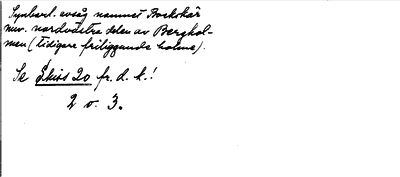 Synbarl. avsåg namnet Bockskär
nuv. nordvästra delen av Berghol-
men (tidigare friliggande holme).
Se Skiss 20 fr. d. k.!
2 o. 3.